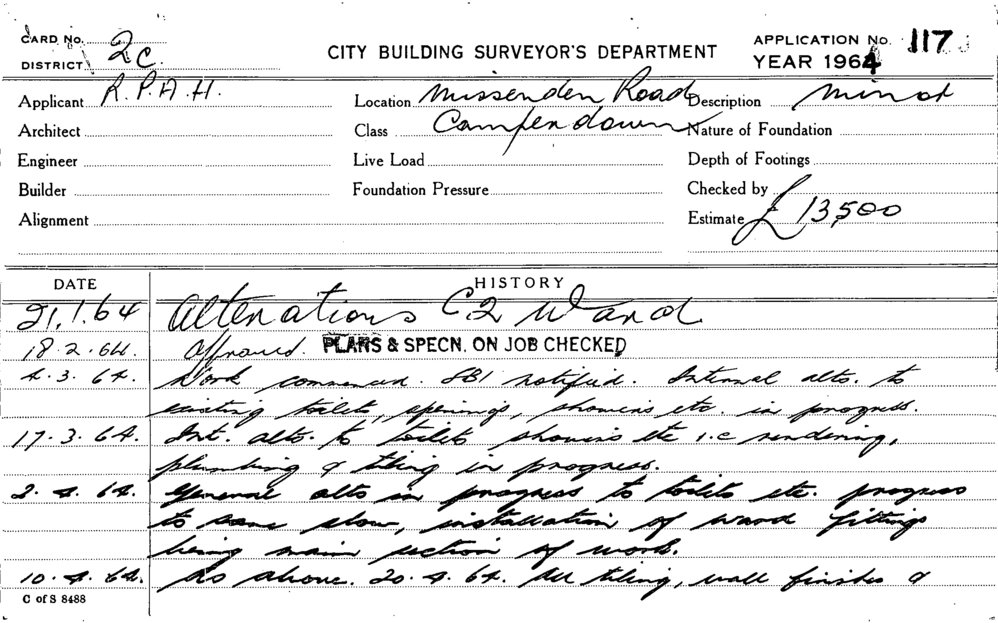 CARD No. 2c.
DISTRICT
CITY BUILDING SURVEYOR'S DEPARTMENT
APPLICATION No. 117
YEAR 1964
Applicant R.P.A.H.
Location Missenden Road
Description Minor
Architect
Class Camperdown
Nature of Foundation
Engineer
Live Load
Depth of Footings
Builder
Foundation Pressure
Checked by
Alignment
Estimate £13,500
DATE HISTORY
21.1.64 Alterations C2 Ward
18.2.64. Approved. PLANS & SPECN. ON JOB CHECKED
4.3.64. Work commenced. SBI notified. Internal alts. to
existing toilets, openings, showers etc. in progress.
17.3.64. Int. alts. to toilets showers etc i.e rendering,
plumbing & tiling in progress.
2.4.64. General alts in progress to toilets etc. progress
to same slow, installation of ward fittings
being main section of work.
10.4.64. As above. 20.4.64. All tiling, wall finishes &
C of S 8488